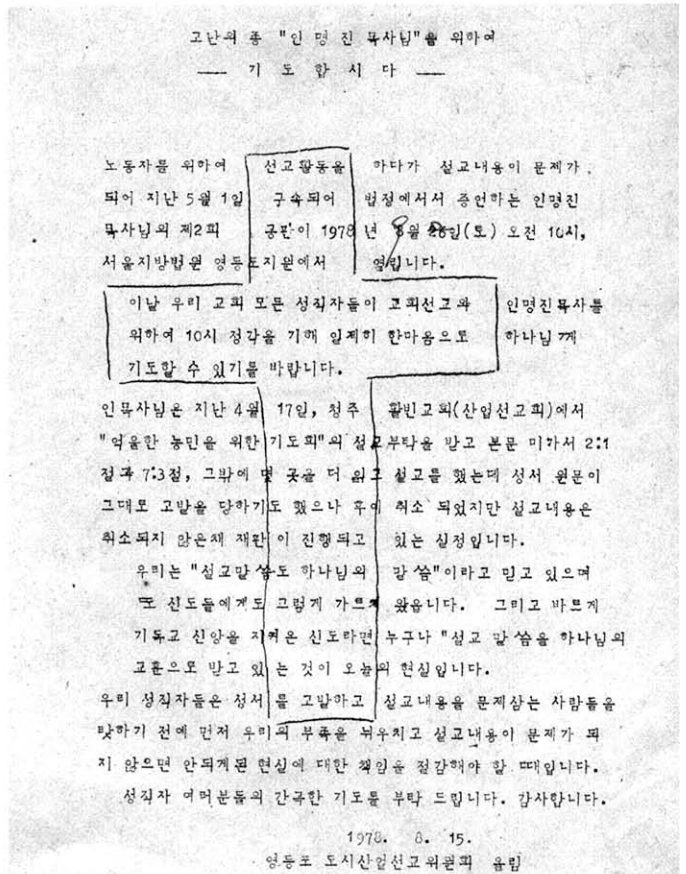 고난의 종 "인 명 진 목사님"을 위하여
기 도 합 시 다
노동자를 위하여 선교활동을 하다가 설교내용이 문제가
되어 지난 5월 1일 구속되어 법정에서서 증언하는 인명진
목사님의 제2회 공판이 1978 년 8월 26일(토) 오전 10시,
서울지방법원 영등포지원에서 열립니다.
이날 우리 교회 모든 성직자들이 교회선교와 인명진목사를
위하여 10시 정각을 기해 일제히 한마음으로 하나님께
기도할 수 있기를 바랍니다.
인목사님은 지난 4월 17일, 청주 활빈교회(산업선교회)에서
"억울한 농민을 위한 기도회"의 설교부탁을 받고 본문 미가서 2:1
절과 7:3절, 그밖에 몇 곳을 더 읽고 설교를 했는데 성서 원문이
그대로 고발을 당하기도 했으나 후에 취소 되었지만 설교내용은
취소되지 않은채 재판 이 진행되고 있는 실정입니다.
우리는 "설교말씀도 하나님의 말씀"이라고 믿고 있으며
또 신도들에게도 그렇게 가르쳐 왔읍니다. 그리고 바르게
기독교 신앙을 지켜온 신도라면 누구나 "설교 말씀을 하나님의
교훈으로 받고 있 는 것이 오늘의 현실입니다.
우리 성직자들은 성서 를 고발하고 설교내용을 문제삼는 사람들을
탓하기 전에 먼저 우리의 부족을 뉘우치고 설교내용이 문제가 되
지 않으면 안되게된 현실에 대한 책임을 절감해야 할 때입니다.
성직자 여러분들의 간곡한 기도를 부탁 드립니다. 감사합니다.
1978. 8. 15.
영등포 도시산업선교위원회 올림